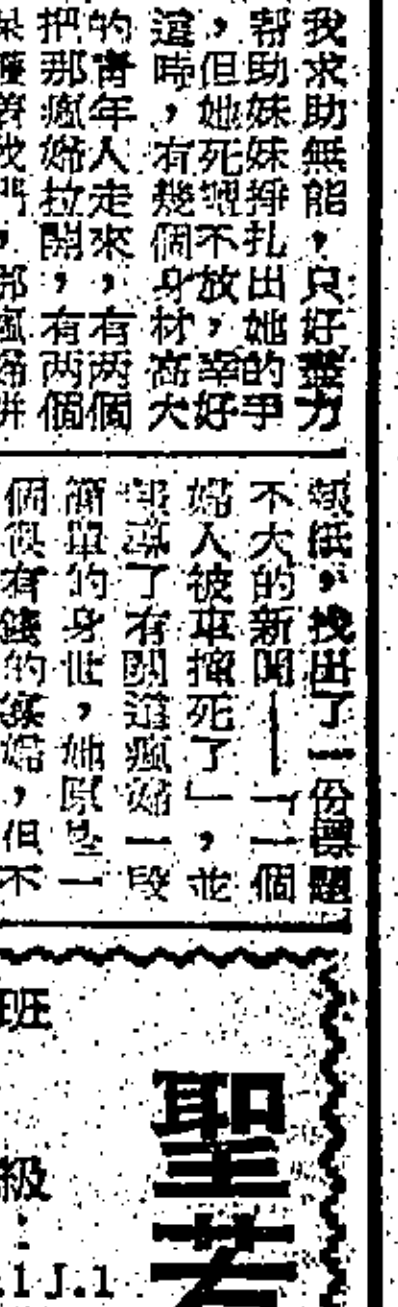 我求助無能，只好盡力
帮助妹妹掙扎出她的手
，但她死也不放，幸好
這時，有幾個身材高大
的青年人走來，有两個
把那瘋婦拉開，有两個
，那瘋婦拼
報紙，找出了一份標題
不大的新聞——「一個
婦人被車撞死了」，並
報導了有關這瘋婦一段
簡單的身世，她原是一
個很有錢的寡婦，但不
聖若
班
級
1J.1